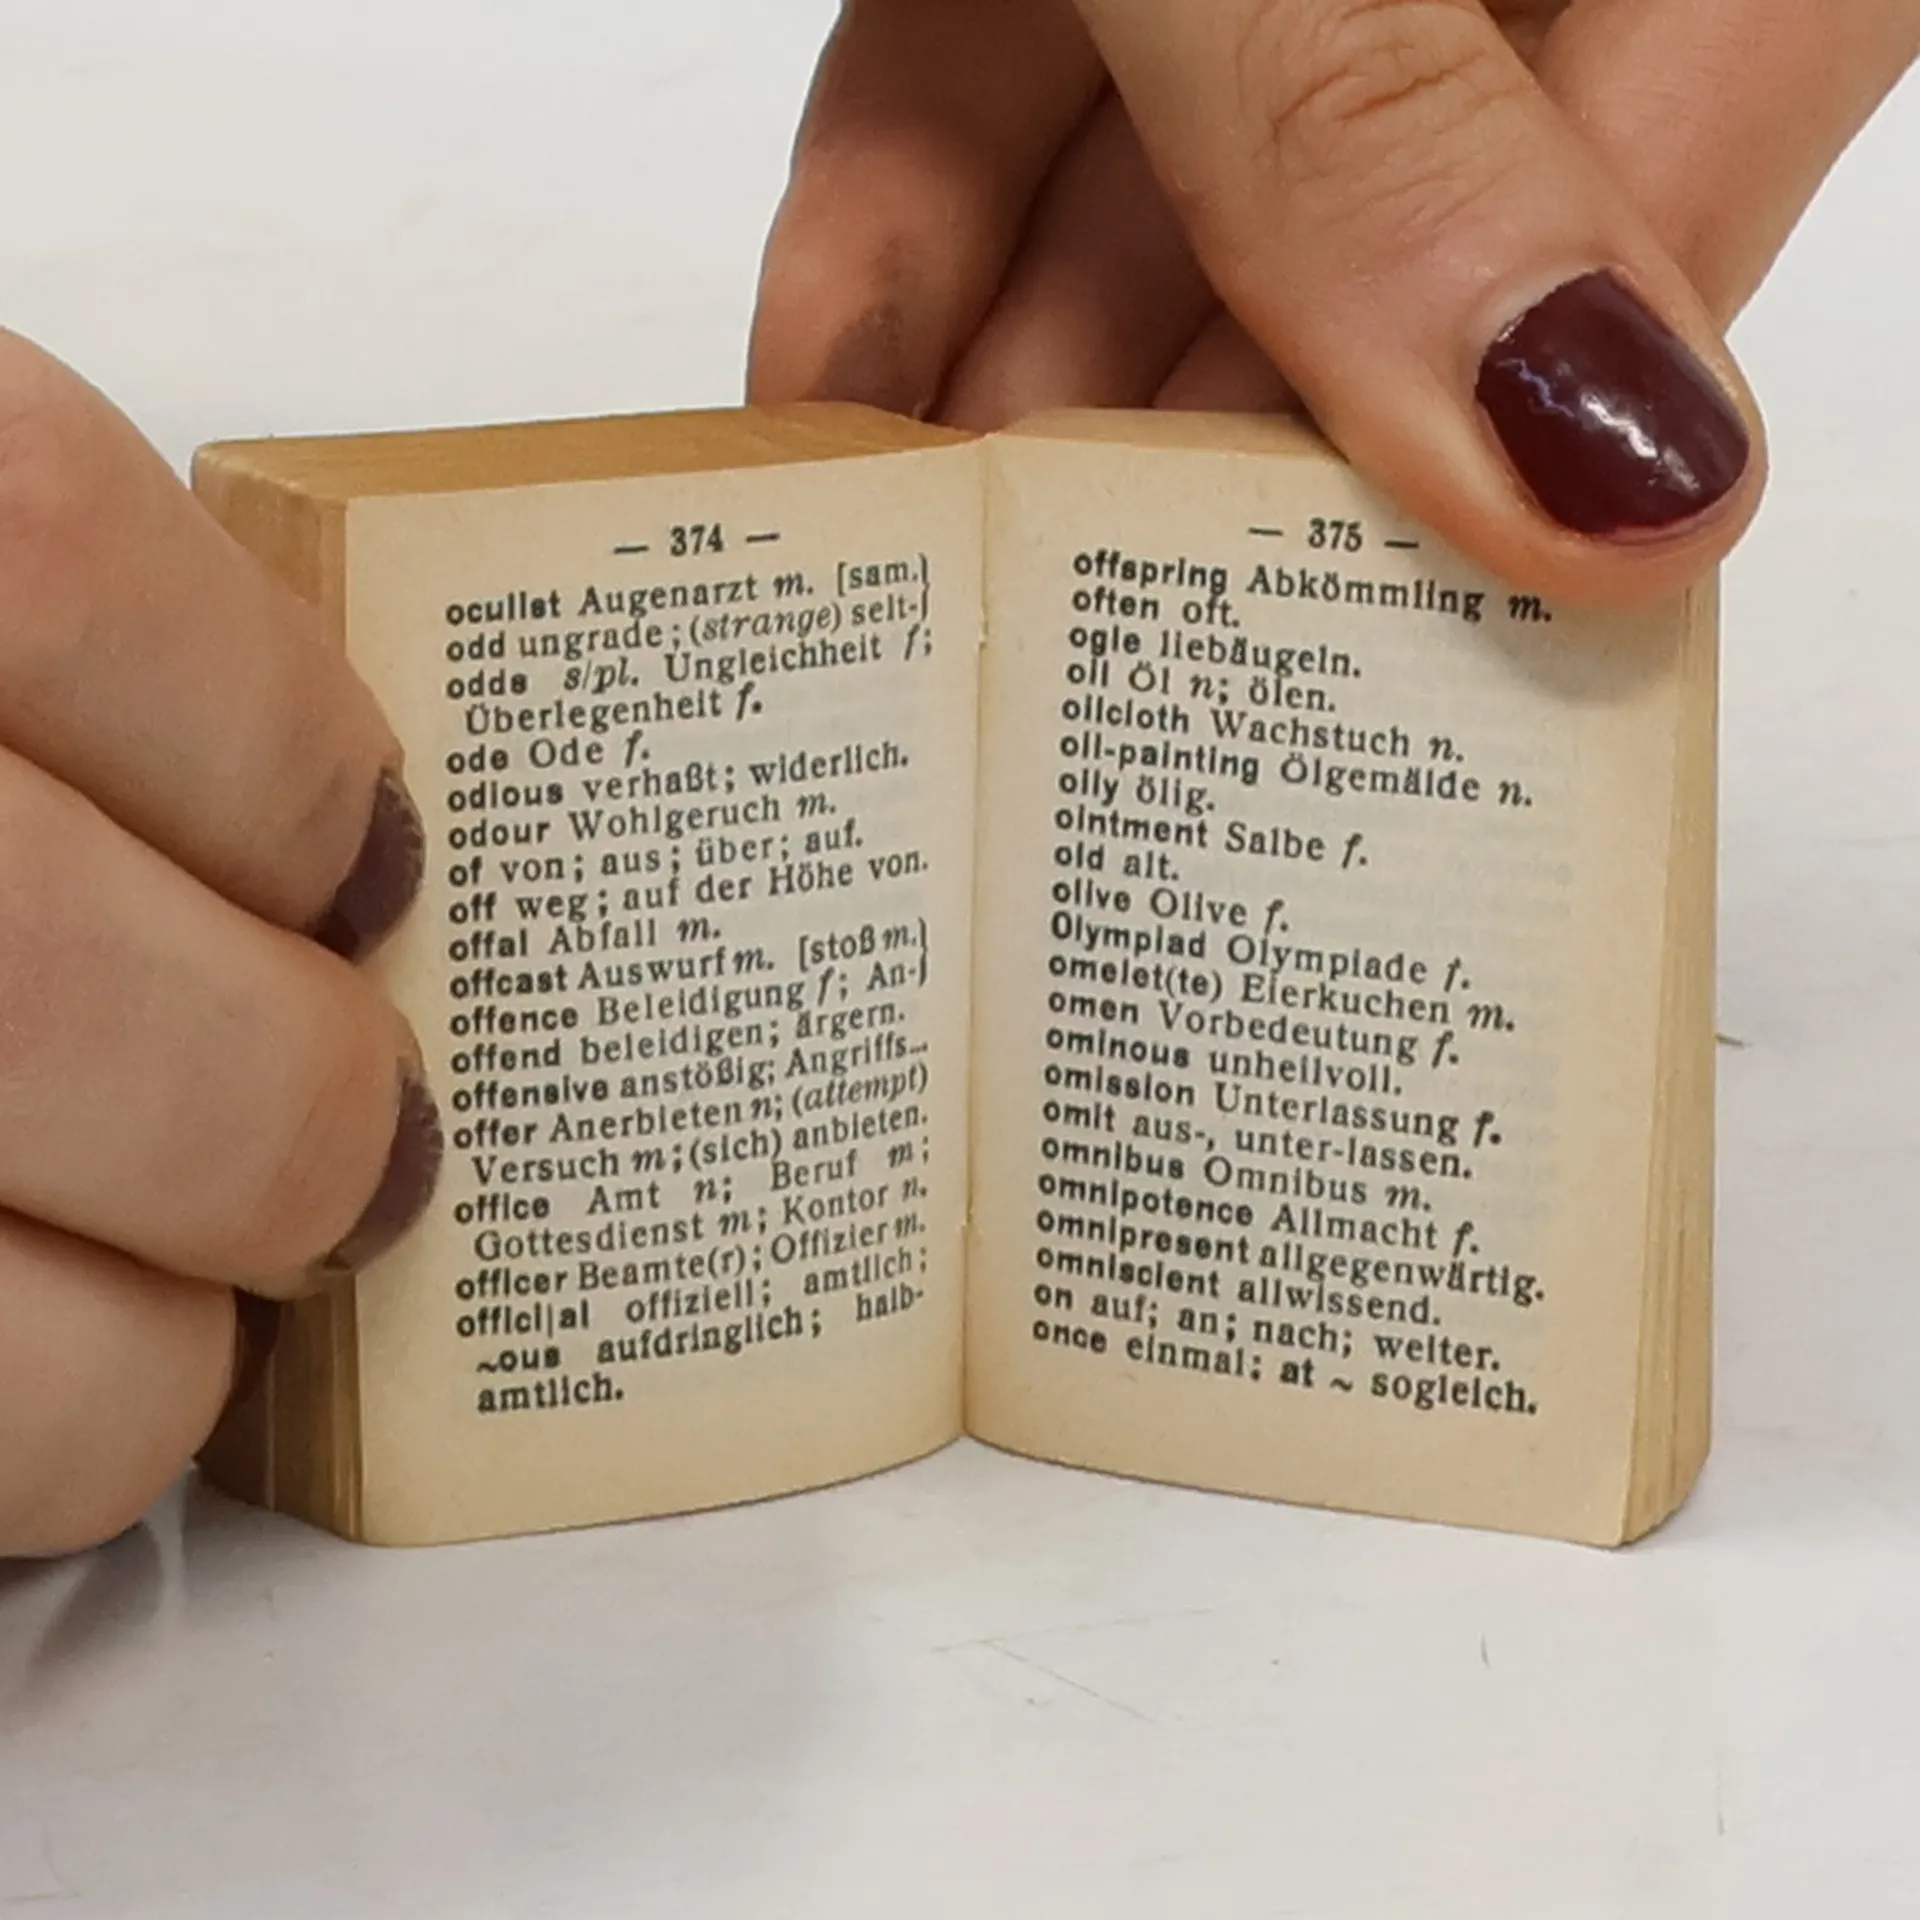 — 374 —
oculist Augenarzt m. [sam.]
odd ungrade; (strange) selt-]
odds s/pl. Ungleichheit f;
Überlegenheit f.
ode Ode f.
odious verhaßt; widerlich.
odour Wohlgeruch m.
of von; aus; über; auf.
off weg; auf der Höhe von.
offal Abfall m.
offcast Auswurf m. [stoß m.]
offence Beleidigung f; An-]
offend beleidigen; ärgern.
offensive anstößig; Angriffs...
offer Anerbieten n; (attempt)
Versuch m; (sich) anbieten.
office Amt n; Beruf m;
Gottesdienst m; Kontor n.
officer Beamte(r); Offizier m.
offici|al offiziell; amtlich;
~ous aufdringlich; halb-
amtlich.
— 375 —
offspring Abkömmling m.
often oft.
ogle liebäugeln.
oil Öl n; ölen.
oilcloth Wachstuch n.
oil-painting Ölgemälde n.
oily ölig.
ointment Salbe f.
old alt.
olive Olive f.
Olympiad Olympiade f.
omelet(te) Eierkuchen m.
omen Vorbedeutung f.
ominous unheilvoll.
omission Unterlassung f.
omit aus-, unter-lassen.
omnibus Omnibus m.
omnipotence Allmacht f.
omnipresent allgegenwärtig.
omniscient allwissend.
on auf; an; nach; weiter.
once einmal; at ~ sogleich.